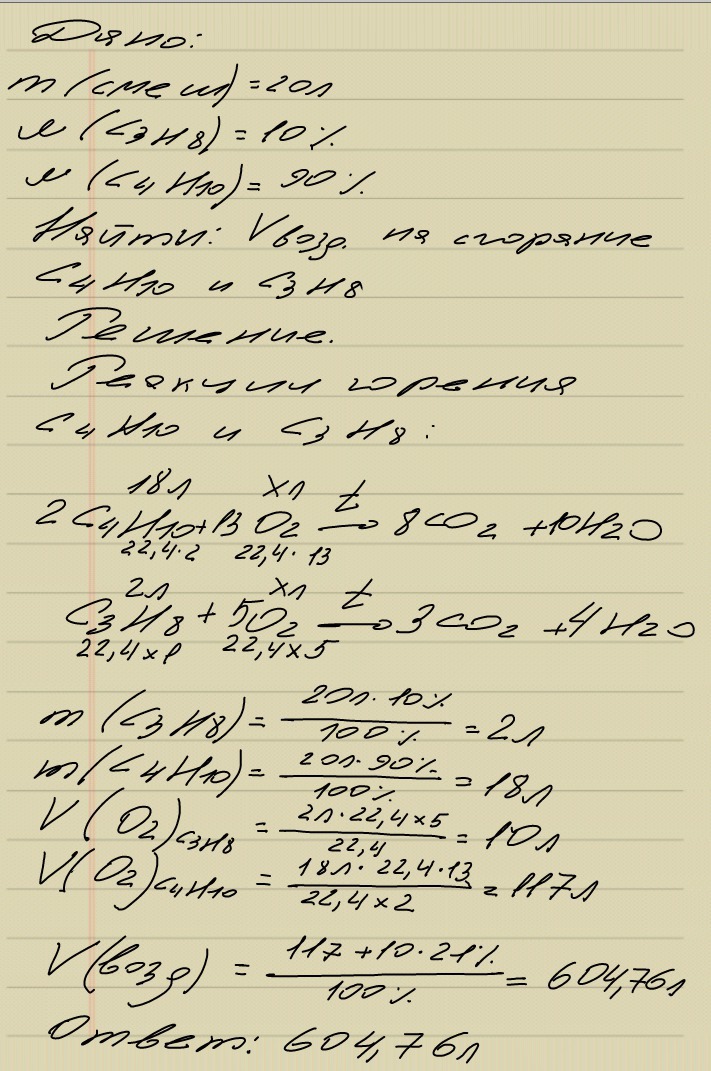 Дано:
m (смеси) = 20л
w (C3H8) = 10%
w (C4H10) = 90%
Найти: V возд. на сгорание
C4H10 и C3H8
Решение.
Реакции горения
C4H10 и C3H8:
18л xл
2C4H10 + 13O2 t→ 8CO2 + 10H2O
22,4·2 22,4·13
2л xл
C3H8 + 5O2 t→ 3CO2 + 4H2O
22,4x1 22,4x5
m (C3H8) = 20л·10% / 100% = 2л
m (C4H10) = 20л·90% / 100% = 18л
V (O2)C3H8 = 2л·22,4x5 / 22,4 = 10л
V (O2)C4H10 = 18л·22,4·13 / 22,4x2 = 117л
V (возд) = 117+10·21% / 100% = 604,76л
Ответ: 604,76л